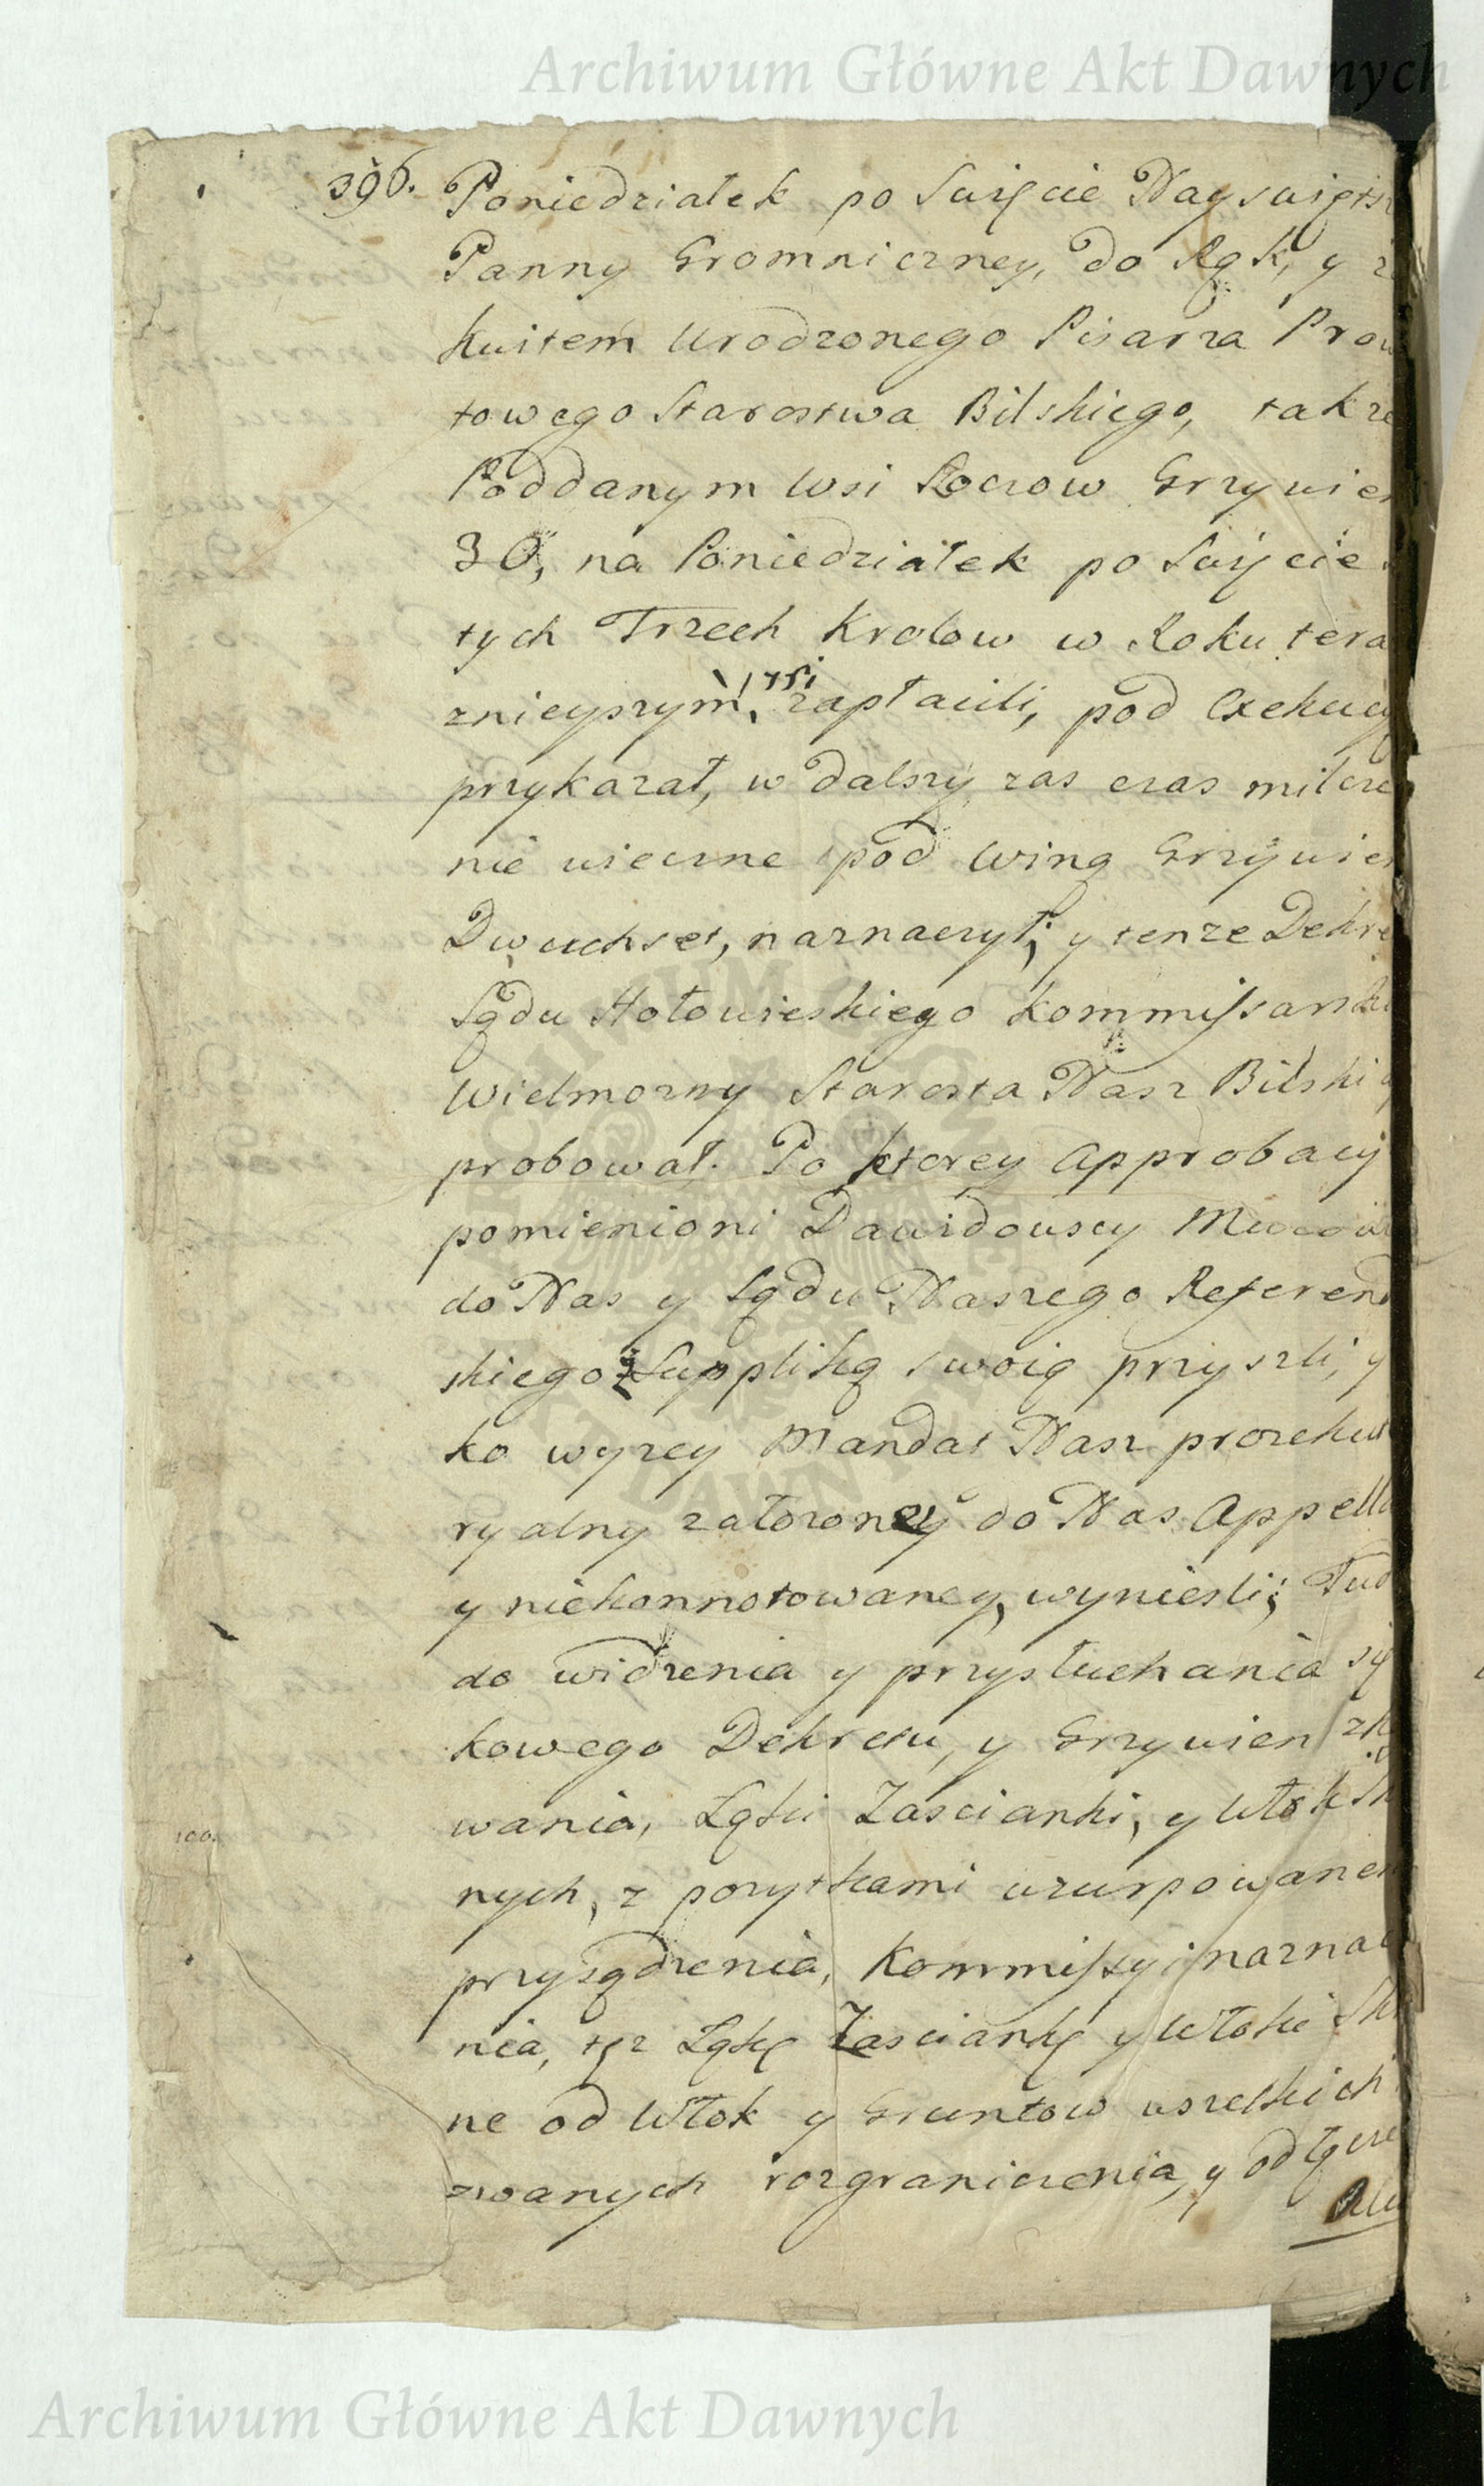 Archiwum Główne Akt Dawnych
396. Poniedziałek po Swięcie Nayswiętsz
Panny Gromniczney, do Rąk, y z
kwitem Urodzonego Pisarza Prow
towego Starostwa Bilskiego, takze
Poddanym Wsi Soczow Grzywien
30, na Poniedziałek po Swięcie
tych Trzech Krolow w Roku tera
znieyszym, zapłacili, pod Exekucy
przykazał, w dalszy zas czas milcze
nie wieczne pod Winą Grzywien
Dwuchset, naznaczył; y tenze Dekre
Sądu Hołowieskiego Kommissarski
Wielmozny Starosta Nasz Bilski
probował. Po ktorey Approbacyi
pomienioni Dawidowscy
do Nas y Sądu Naszego Referend
skiego z Suppliką swoią przyszli, y
ko wyzey Mandat Nasz prozekut
ryalny załozoney do Nas Appella
y niekonnotowaney, wyniesli; Tud
do widzenia y przysłuchania się
kowego Dekretu, y Grzywien
wania, Łąki Zascianki, y Włok
nych, z pozytkami uzurpowanem
przysądzenia, Kommissyi naznac
nia, tęz Łąkę Zasciankę y Włoki
ne od Włok y Gruntow wszelkich
zwanych rozgraniczenia, y odłącze
100.
Archiwum Główne Akt Dawnych